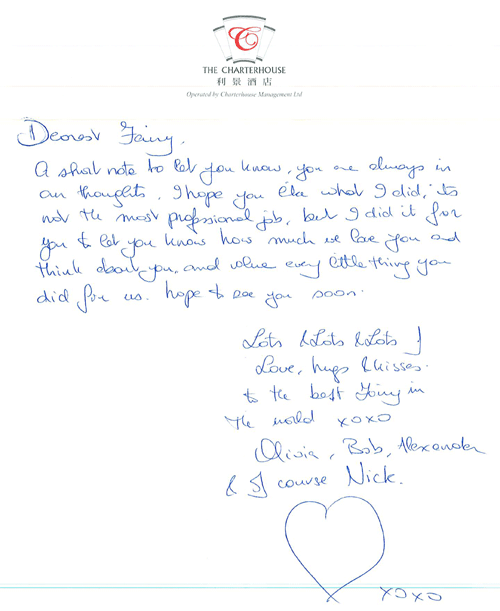 C
THE CHARTERHOUSE
利景酒店
Operated by Charterhouse Management Ltd
Dearest Fairy,
A short note to let you know, you are always in
our thoughts. I hope you like what I did, its
not the most professional job, but I did it for
you to let you know how much we love you and
think about you, and value every little thing you
did for us. hope to see you soon.
Lots & Lots & Lots of
Love, hugs & kisses.
to the best Fairy in
the world xoxo
Olivia, Bob, Alexander
& of course Nick.
xoxo